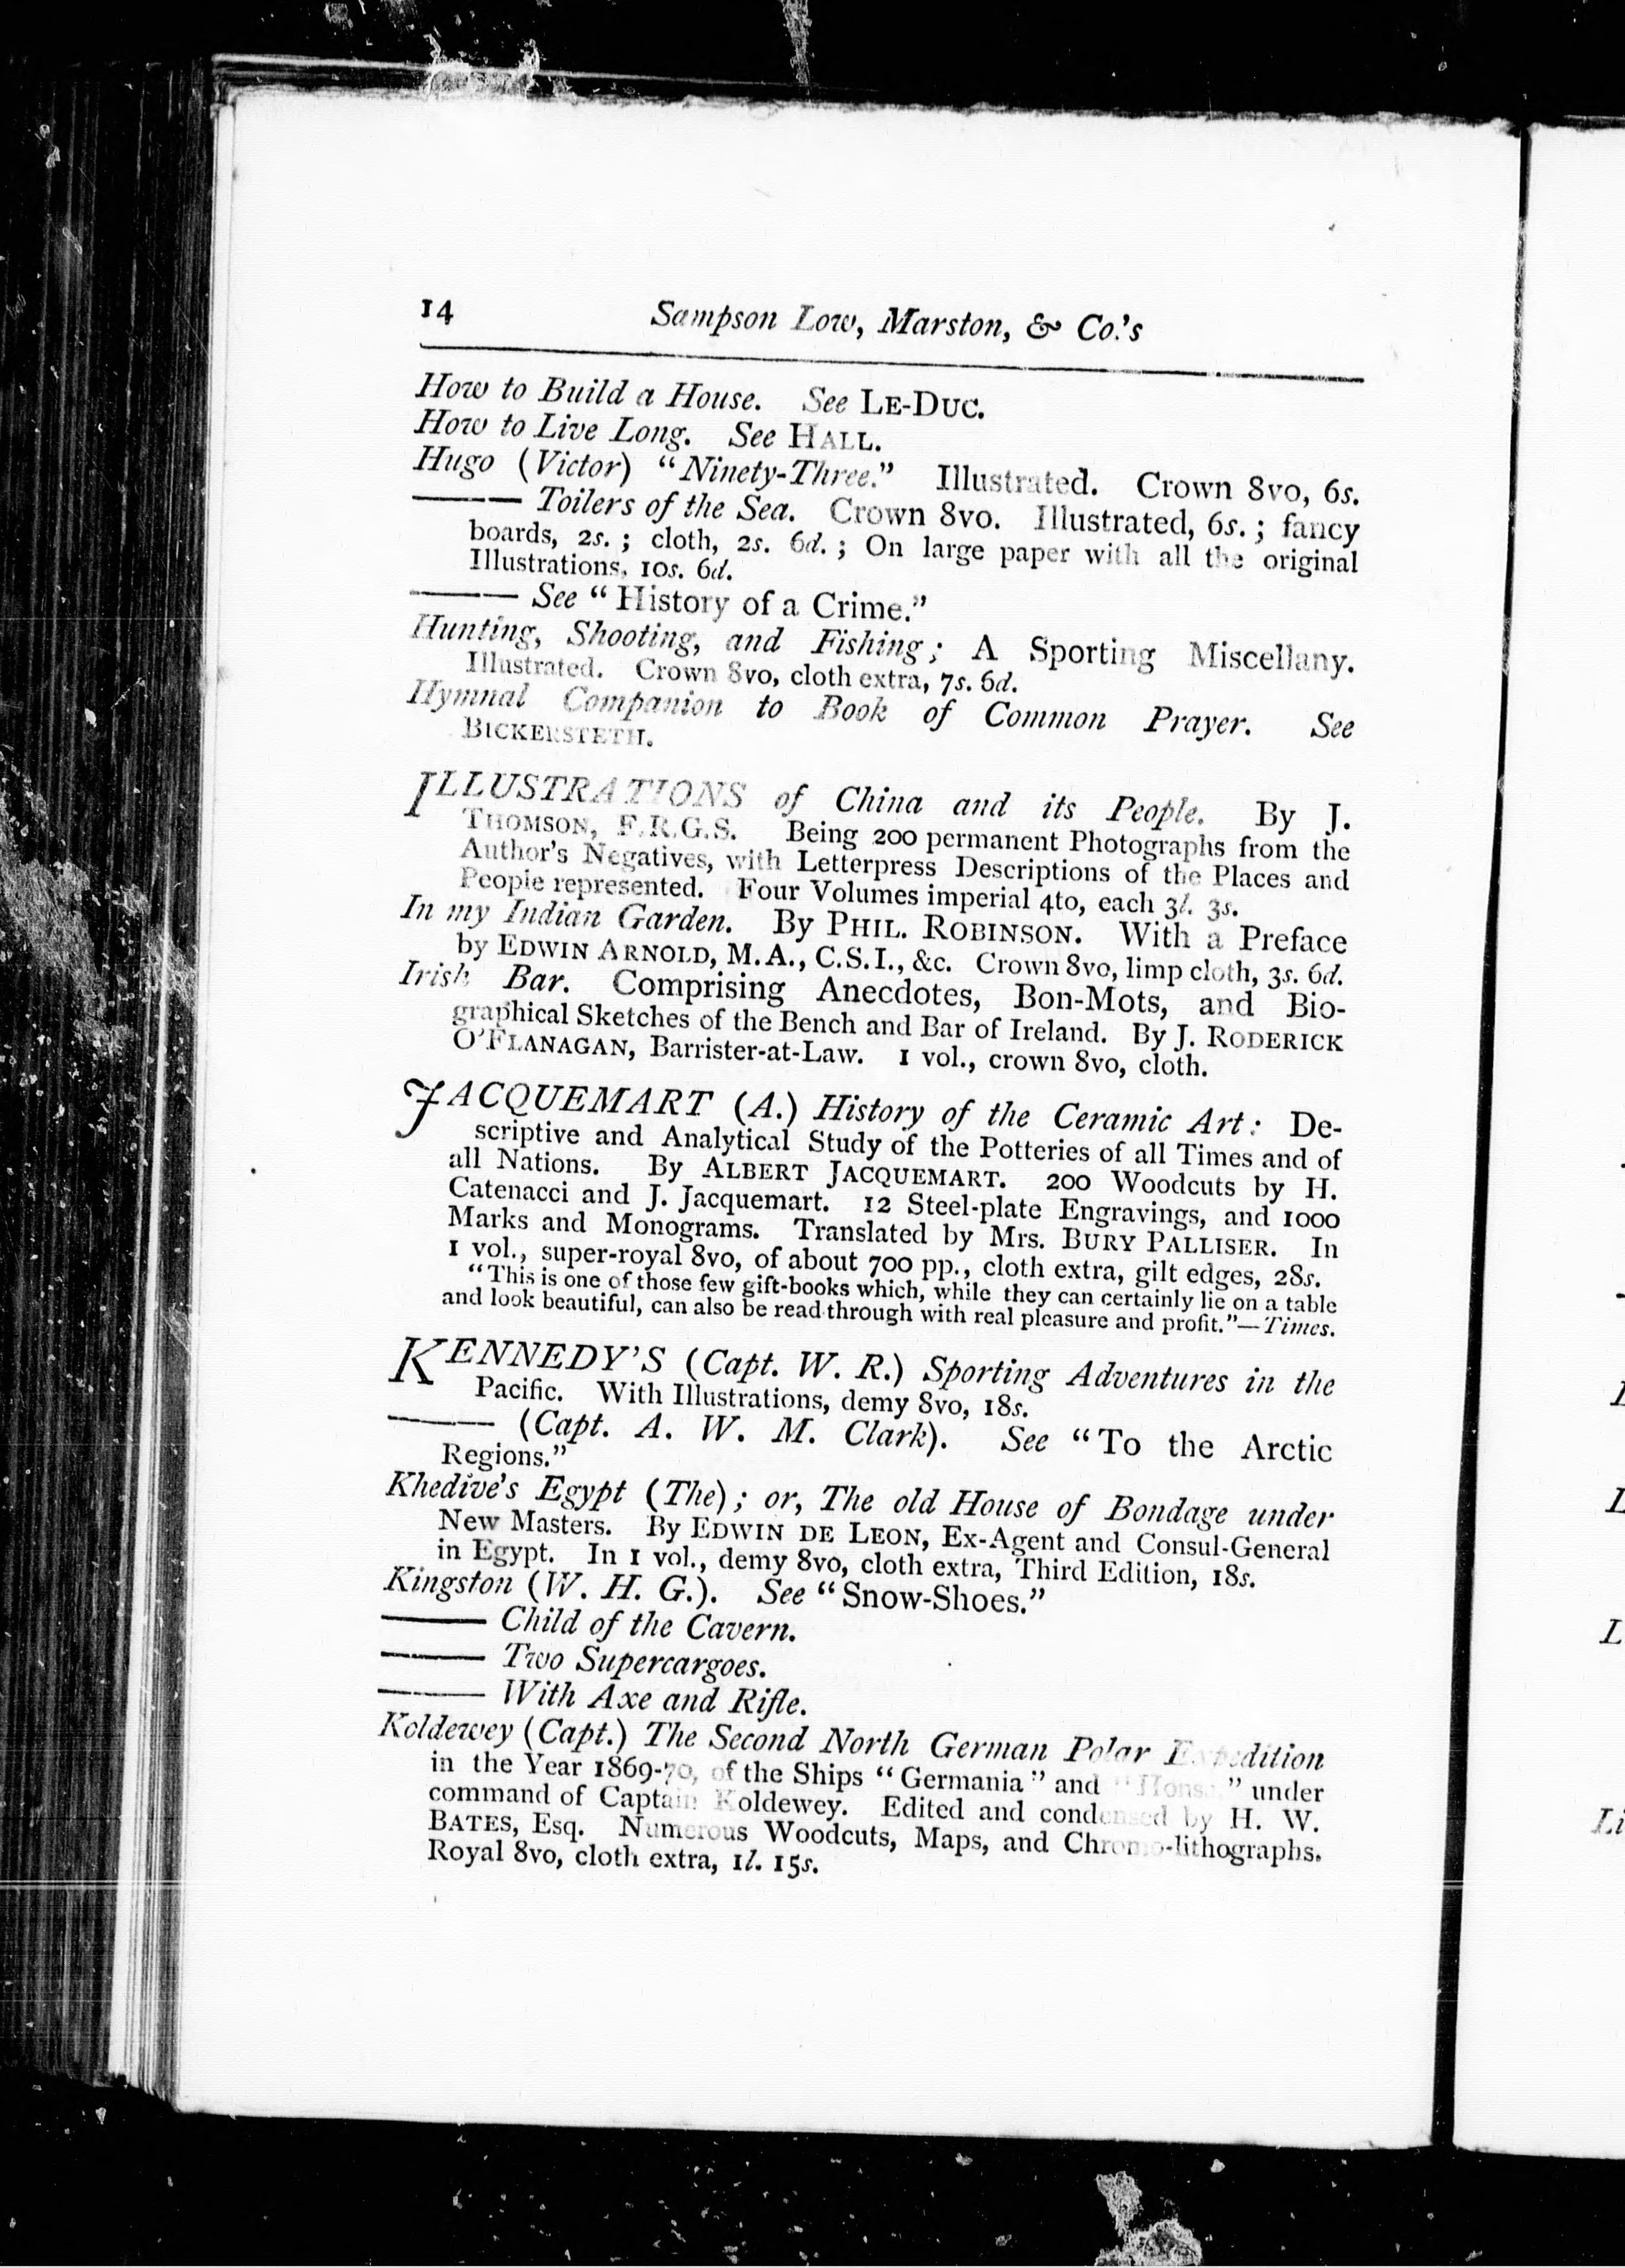 14 Sampson Low, Marston, & Co.'s
How to Build a House. See LE-DUC.
How to Live Long. See HALL.
Hugo (Victor) "Ninety-Three." Illustrated. Crown 8vo, 6s.
——— Toilers of the Sea. Crown 8vo. Illustrated, 6s. ; fancy
boards, 2s. ; cloth, 2s. 6d. ; On large paper with all the original
Illustrations, 10s. 6d.
——— See "History of a Crime."
Hunting, Shooting, and Fishing ; A Sporting Miscellany.
Illustrated. Crown 8vo, cloth extra, 7s. 6d.
Hymnal Companion to Book of Common Prayer. See
BICKERSTETH.
ILLUSTRATIONS of China and its People. By J.
THOMSON, F.R.G.S. Being 200 permanent Photographs from the
Author's Negatives, with Letterpress Descriptions of the Places and
People represented. Four Volumes imperial 4to, each 3l. 3s.
In my Indian Garden. By PHIL. ROBINSON. With a Preface
by EDWIN ARNOLD, M.A., C.S.I., &c. Crown 8vo, limp cloth, 3s. 6d.
Irish Bar. Comprising Anecdotes, Bon-Mots, and Bio-
graphical Sketches of the Bench and Bar of Ireland. By J. RODERICK
O'FLANAGAN, Barrister-at-Law. 1 vol., crown 8vo, cloth.
JACQUEMART (A.) History of the Ceramic Art: De-
scriptive and Analytical Study of the Potteries of all Times and of
all Nations. By ALBERT JACQUEMART. 200 Woodcuts by H.
Catenacci and J. Jacquemart. 12 Steel-plate Engravings, and 1000
Marks and Monograms. Translated by Mrs. BURY PALLISER. In
1 vol., super-royal 8vo, of about 700 pp., cloth extra, gilt edges, 28s.
"This is one of those few gift-books which, while they can certainly lie on a table
and look beautiful, can also be read through with real pleasure and profit."—Times.
KENNEDY'S (Capt. W. R.) Sporting Adventures in the
Pacific. With Illustrations, demy 8vo, 18s.
——— (Capt. A. W. M. Clark). See "To the Arctic
Regions."
Khedive's Egypt (The) ; or, The old House of Bondage under
New Masters. By EDWIN DE LEON, Ex-Agent and Consul-General
in Egypt. In 1 vol., demy 8vo, cloth extra, Third Edition, 18s.
Kingston (W. H. G.). See "Snow-Shoes."
——— Child of the Cavern.
——— Two Supercargoes.
——— With Axe and Rifle.
Koldewey (Capt.) The Second North German Polar Expedition
in the Year 1869-70, of the Ships "Germania" and " " under
command of Captain Koldewey. Edited and condensed by H. W.
BATES, Esq. Numerous Woodcuts, Maps, and Chromo-lithographs.
Royal 8vo, cloth extra, 1l. 15s.